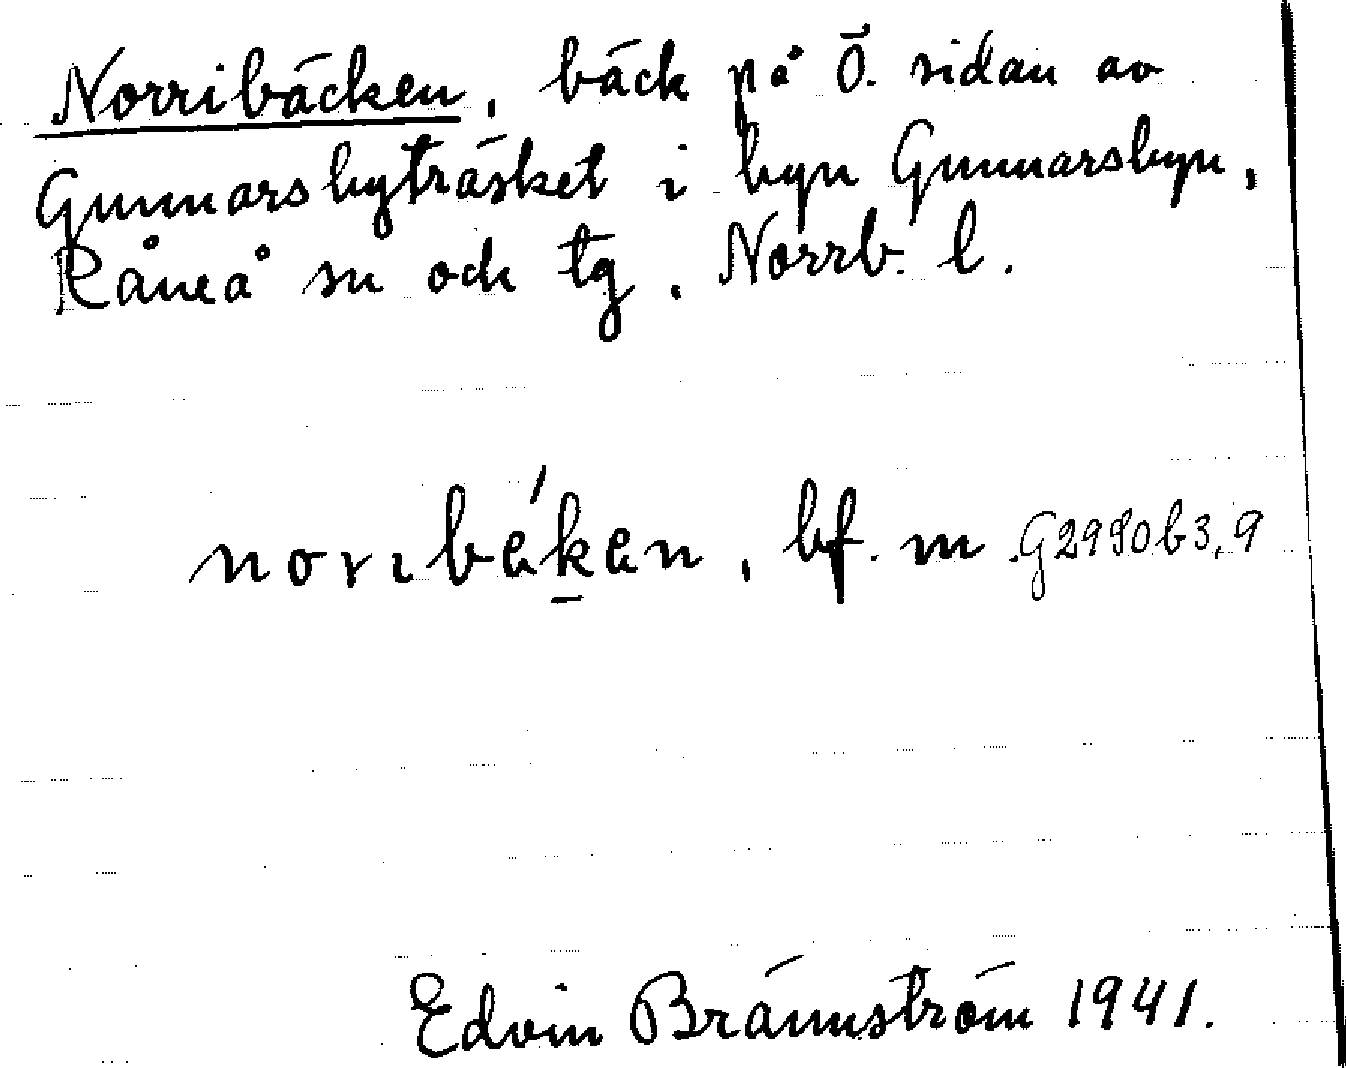 Norribäcken, bäck på Ö. sidan av
Gunnarsbyträsket i byn Gunnarsbyn,
Råneå sn och tg. Norrb. l.
norıbékan, bf. m. G2990b3,9
Edvin Brännström 1941.